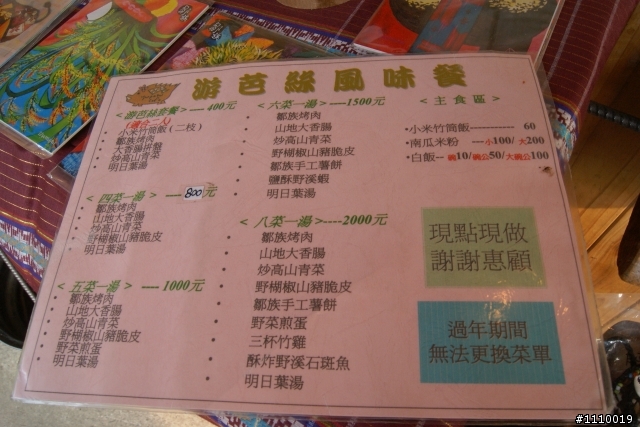 游芭絲風味餐
<游芭絲套餐>----400元
小米竹筒飯(二枝)
鄒族烤肉
大香腸拼盤
炒高山青菜
明日葉湯
四菜一湯> ----800元
鄒族烤肉
山地大香腸
炒高山青菜
野猢椒山豬脆皮
明日葉湯
<五菜一湯> ----1000元
鄒族烤肉
山地大香腸
炒高山青菜
野猢椒山豬脆皮
野菜煎蛋
明日葉湯
<六菜一湯>----1500元
鄒族烤肉
山地大香腸
炒高山青菜
野猢椒山豬脆皮
鄒族手工薯餅
鹽酥野溪蝦
明日葉湯
<八菜一湯>----2000元
鄒族烤肉
山地大香腸
炒高山青菜
野猢椒山豬脆皮
鄒族手工薯餅
野菜煎蛋
三杯竹雞
酥炸野溪石斑魚
明日葉湯
<主食區>
·小米竹筒飯---------- 60
·南瓜米粉 ---小100/大200
·白飯--碗10/鍋公50/大鍋公100
現點現做
謝謝惠顧
過年期間
無法更換菜單
#1110019